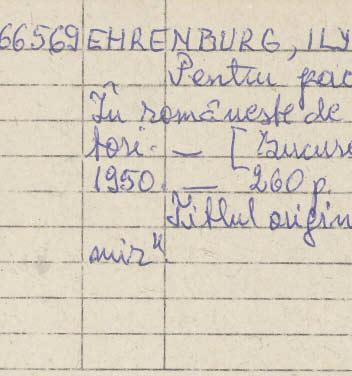 66569 EHRENBURG, ILY
Pentru pac
În românește de
tori. — [Bucure
1950. — 260 p.
Titlul origin
mir".